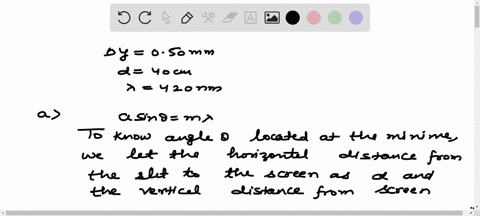 Δy = 0.50mm
d = 40cm
λ = 420nm
a> a sinθ = mλ
To know angle θ located at the minime,
we let the horizontal distance from
the slit to the screen as d and
the vertical distance from screen